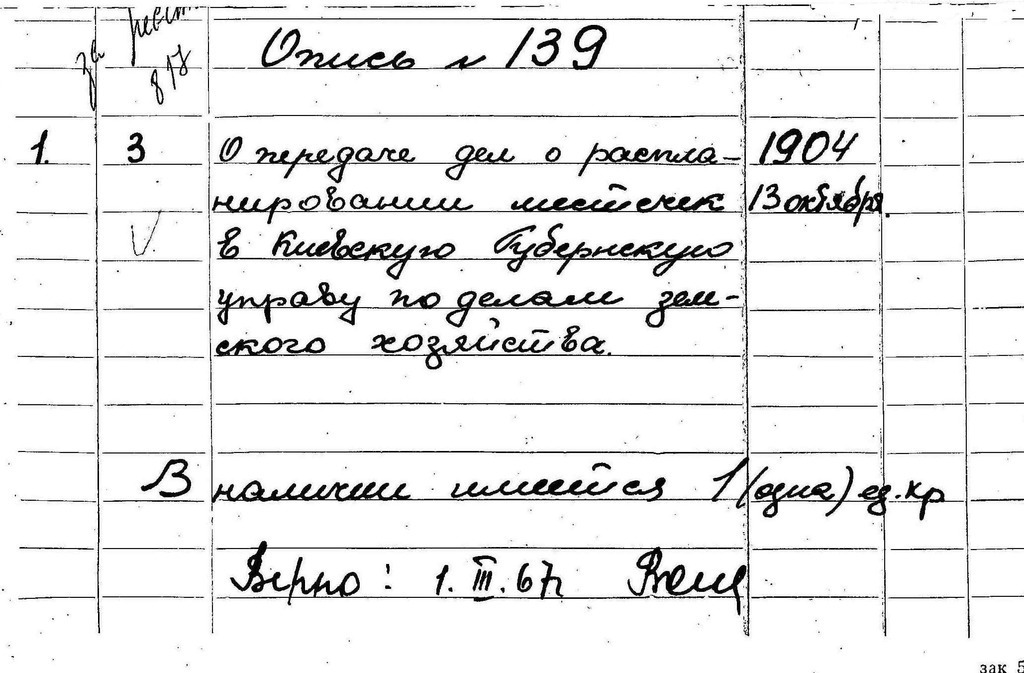 за
817
Опись № 139
1. 3 О передаче дел о распла- 1904
нировании местечек 13 октября.
V в Киевскую Губернскую
управу по делам зем-
ского хозяйства.
В наличии имеется 1 (одна) ед. хр
Верно: 1.III.67г
зак 5